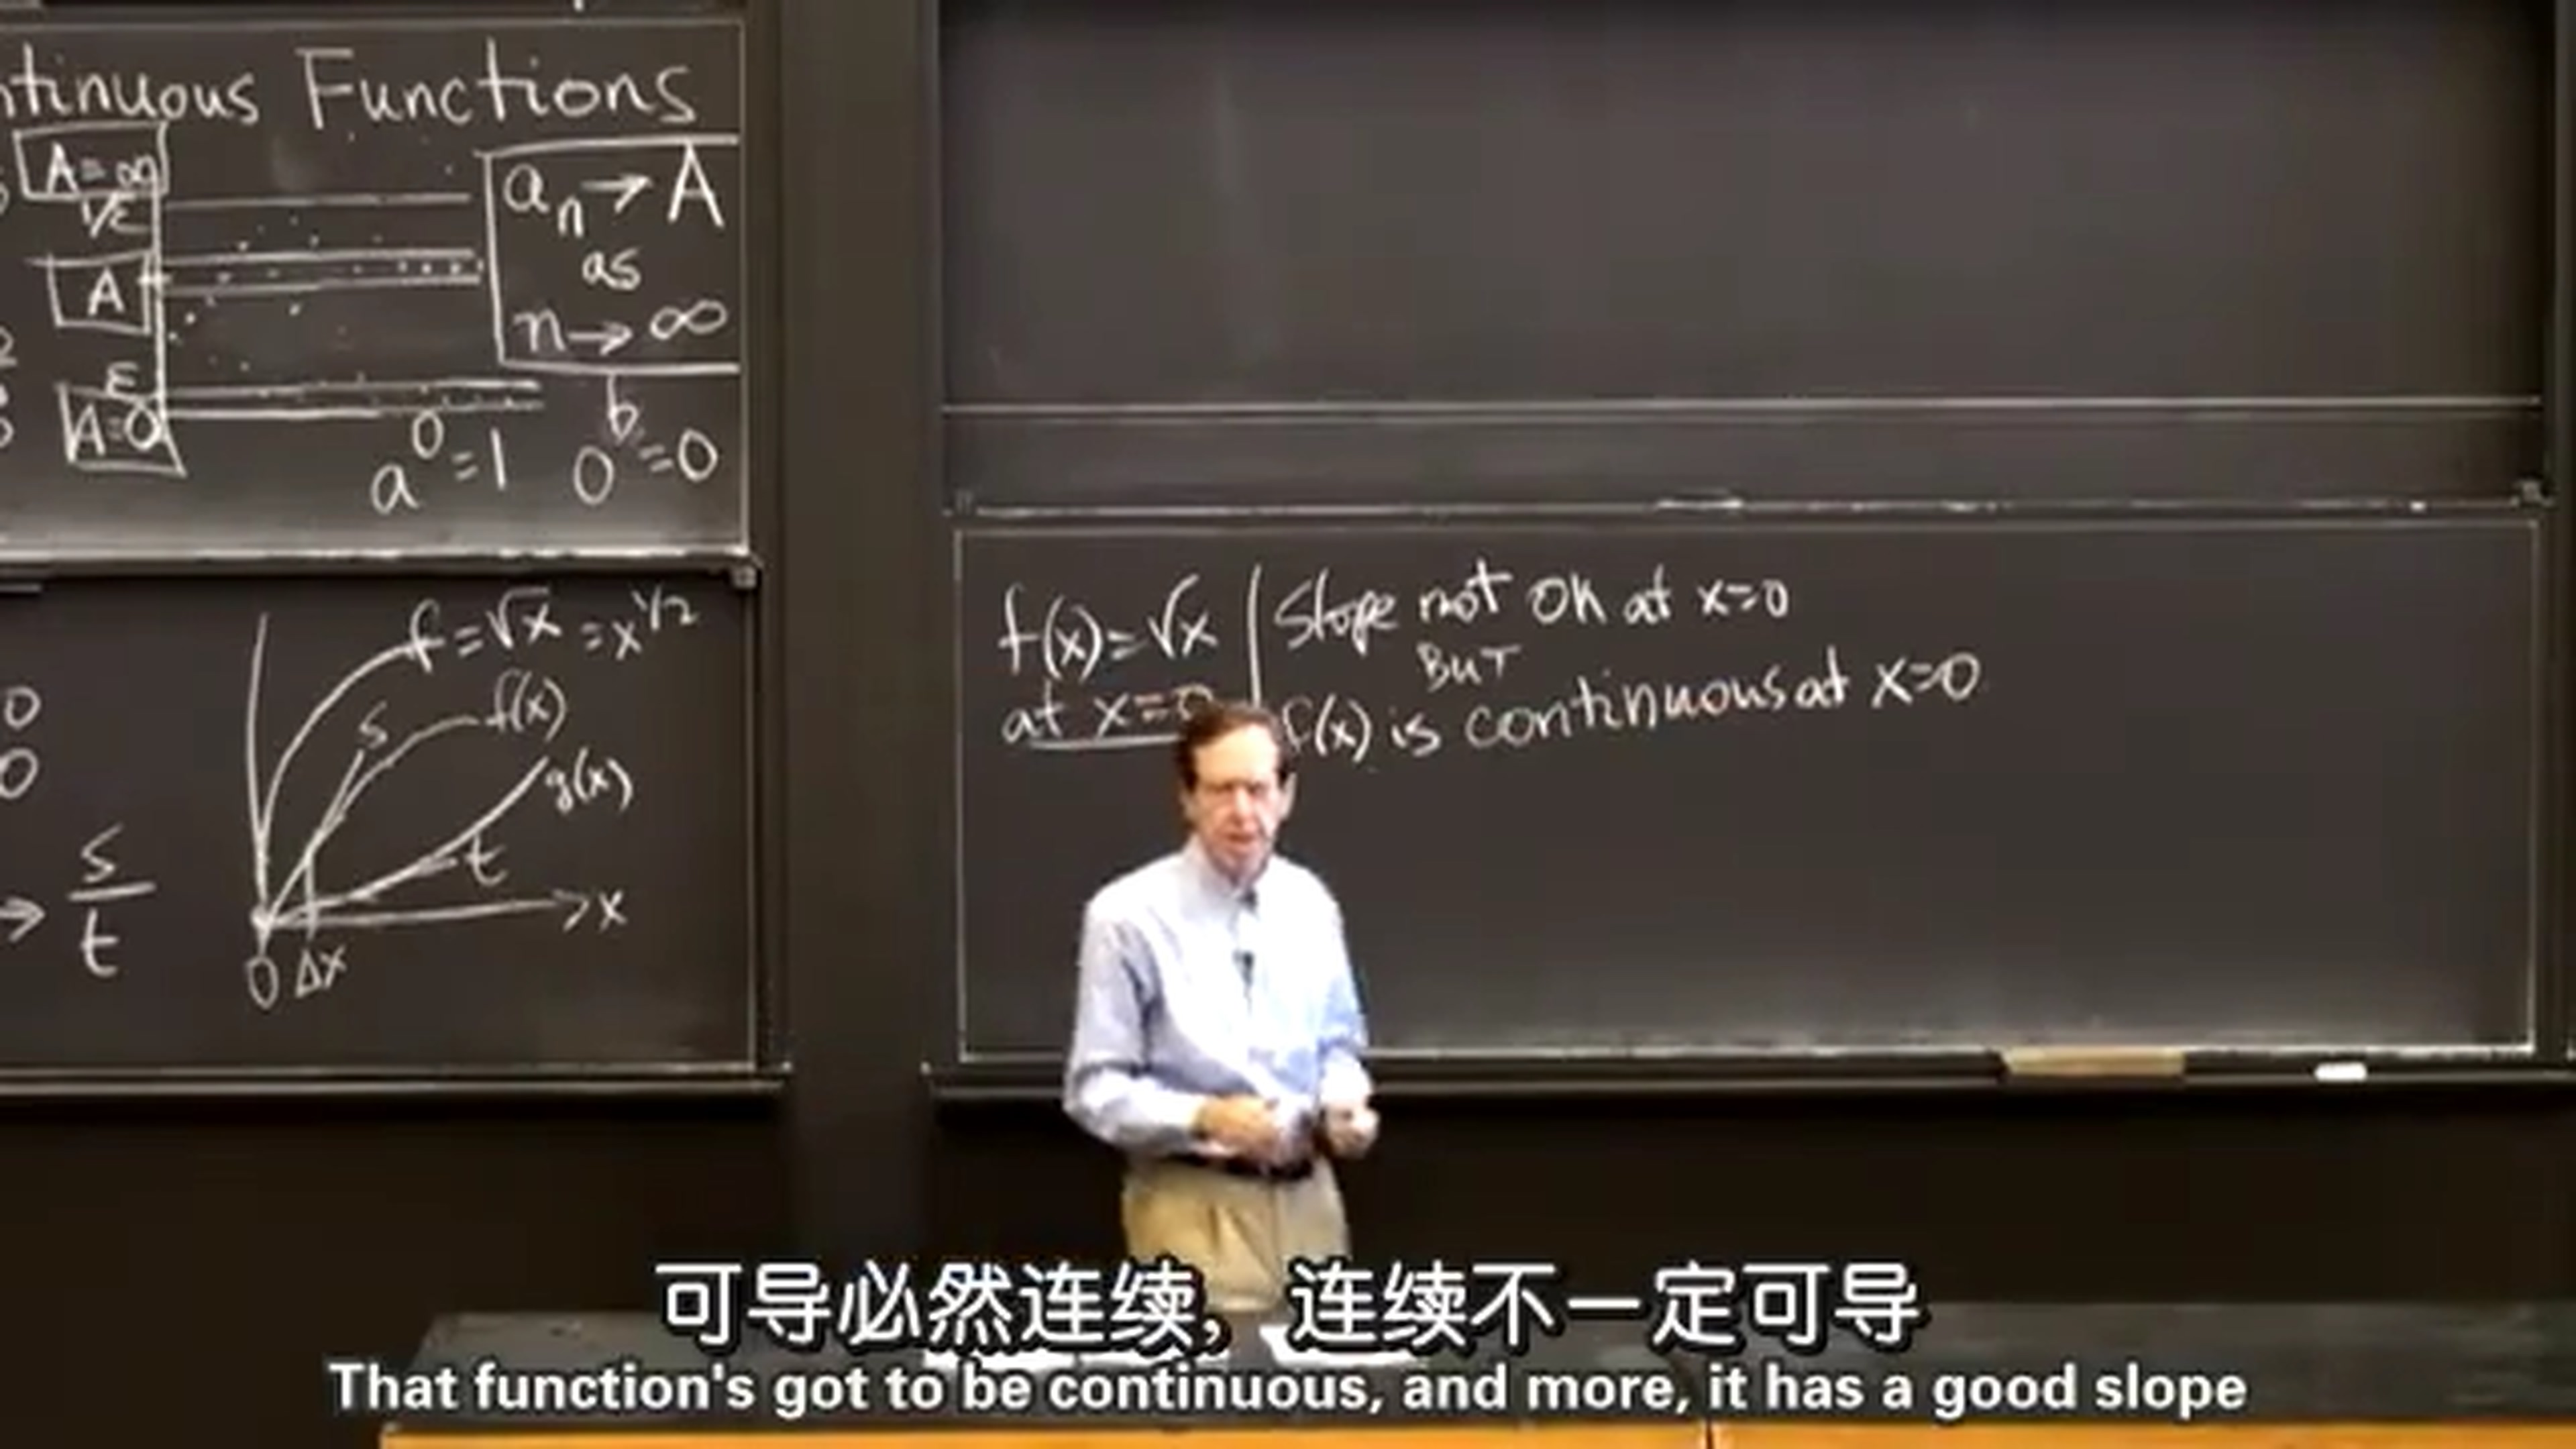 ntinuous Functions
A=∞
1/ε
A
ε
A=0
aₙ→A
as
n→∞
a⁰=1
0ᵇ=0
0
0
→ s/t
f=√x=x^1/2
f(x)
s
g(x)
t
x
0 Δx
f(x)=√x
at x=0
Slope not OK at x=0
BUT
f(x) is continuous at x=0
可导必然连续，连续不一定可导
That function's got to be continuous, and more, it has a good slope